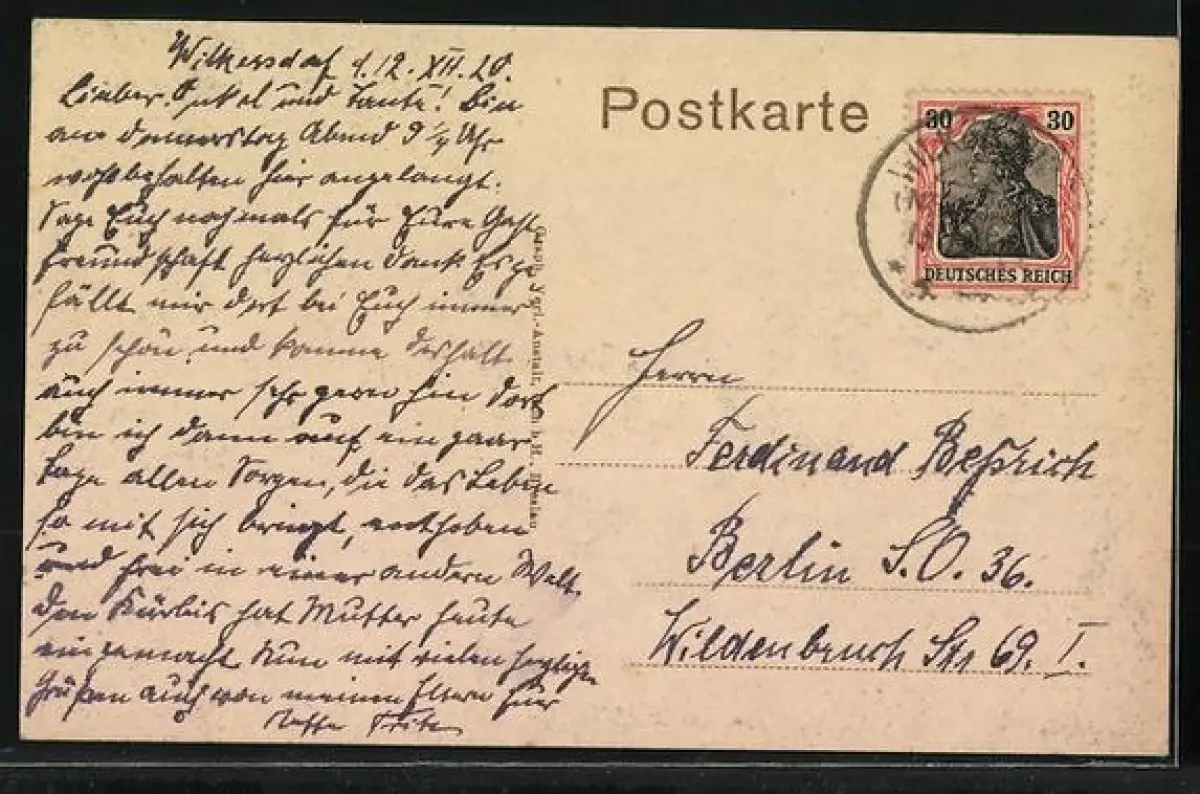 Wilkersdorf d. 12. XII. 20.
Lieber Onkel und Tante! Bin
am Donnerstag Abend 9 1/4 Uhr
wohlbehalten hier angelangt.
Sage Euch nochmals für Eure Gast
freundschaft herzlichen Dank. Es ge
fällt mir dort bei Euch immer
zu schön und komme deshalb
auch immer sehr gern hin. Dort
bin ich dann auf ein paar
Tage allen Sorgen, die das Leben
so mit sich bringt, enthoben
und frei in einer andern Welt.
Den Kürbis hat Mutter heute
eingemacht. Nun mit vielen herzlichen
Grüßen auch von meinen Eltern Euer
Neffe Fritz
Postkarte
30 30
DEUTSCHES REICH
Herrn
Ferdinand
Berlin S.O. 36.
Wildenbruch Str 69. I.